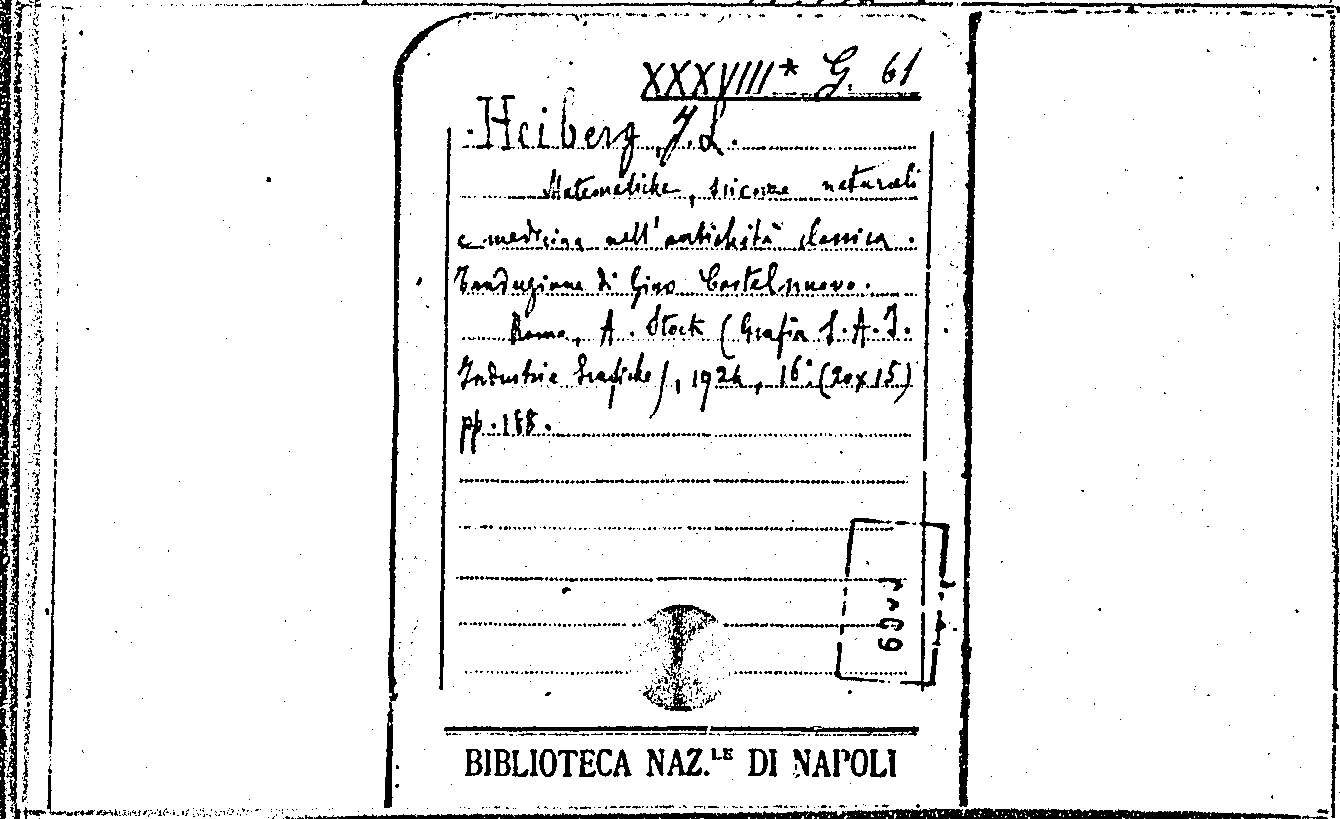 XXXVIII* G. 61
Heiberg, J. L.
Matematiche, scienze naturali
e medicina nell'antichità classica.
Traduzione di Gino Castelnuovo.
Roma, A. Stock (Grafia S.A.I.
Industrie Grafiche), 1924, 16° (20x15)
pp. 188.
BIBLIOTECA NAZ.LE DI NAPOLI